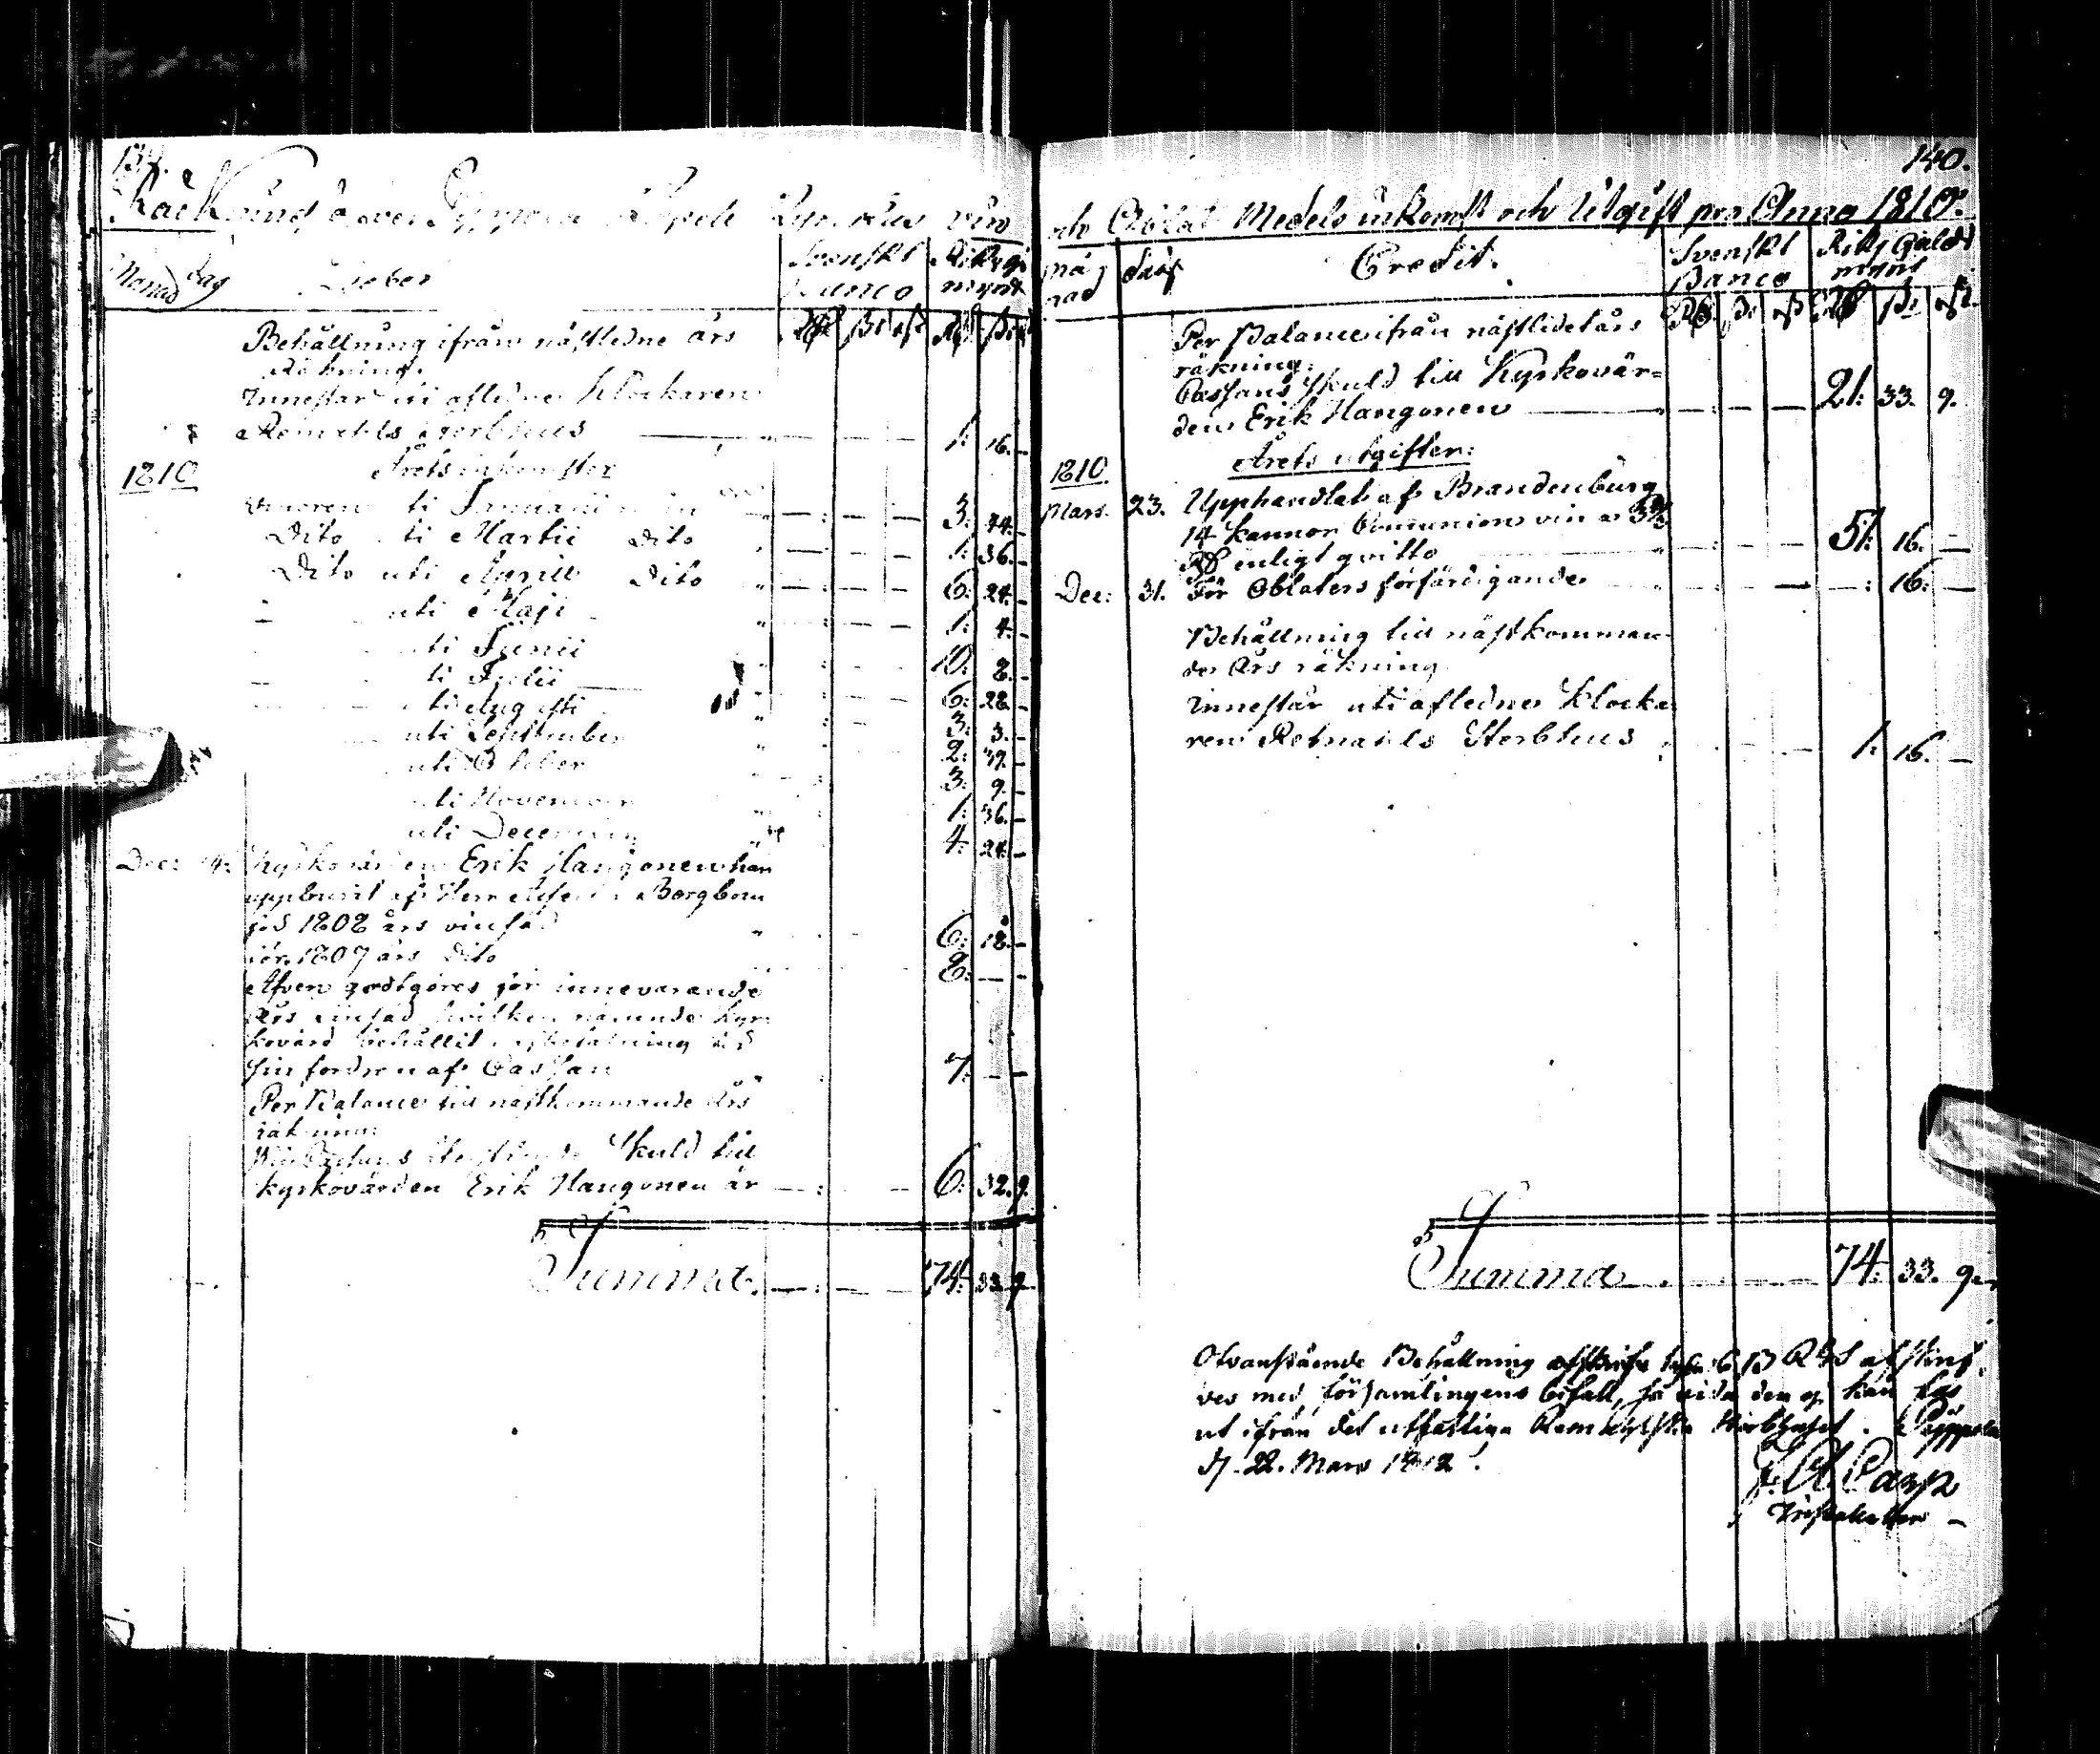 139.
Räkning öfver Pyppola Capells Kyrckas vin
Månad dag Debet Svenskt Banco Riksg: mynt
Rd ß rst Rd ß rst
Behållning ifrån nästledne års
Räkning.
Innestår uti aflidne Klockaren
Remahls Sterbhus 1: 16. —
1810 Årets inkomster
Influten uti Januarii 3: 24. —
Dito uti Martii Dito 1: 36. —
Dito uti Aprill Dito 6: 24. —
uti Maji 1: 4. —
uti Junii 10: 8. —
uti Julii 6: 28. —
uti Augusti 3: 3. —
uti September 2: 39. —
uti October 3: 9. —
uti November 1: 36. —
uti December 4: 24. —
Dec: Kyrkovärden Erik Hangonen har
uppburit af Herr Borgbom
för 1808 års vinsäd 6: 18. —
för 1809 års Dito 8: — —
Äfven godtgöres för innevarande
Års vinsäd hvilken nämnde Kyr-
kovärd behållit i afbetalning på
sin fordran af Cassan 7: — —
Per Balance till nästkommande Års
räkning:
Skuld till
kyrkovärden Erik Hangonen är 6: 32. 9.
Summa 74: 33. 9.
140.
och Oblat Medels inkomst och Utgift pro Anno 1810.
Må-nad dag Credit. Svenskt Banco Riks Gälds mynt
Rd ß rst Rd ß rst
Per Balance ifrån nästlidet års
räkning:
Cassans Skuld till Kyrkovär-
den Erik Hangonen 21: 33. 9.
1810. Årets utgifter:
Mars. 23. Upphandlat af Brandenburg
14 kannor Communions vin a 3 2/3
Rd enligt qvitto 51: 16. —
Dec: 31. För Oblaters förfärdigande — 16: —
Behållning till nästkomman-
de Års räkning
Innestår uti aflidne Klocka-
ren Remahls Sterbhus 1: 16. —
Summa 74: 33. 9.
Ofvanstående Behållning 16 ß RGS afskrif-
ves med församlingens bifall, så vida den ej kan fås
ut ifrån det utfattiga Remahlska Sterbhuset. Pyppola
d. 22. Mars 1812.